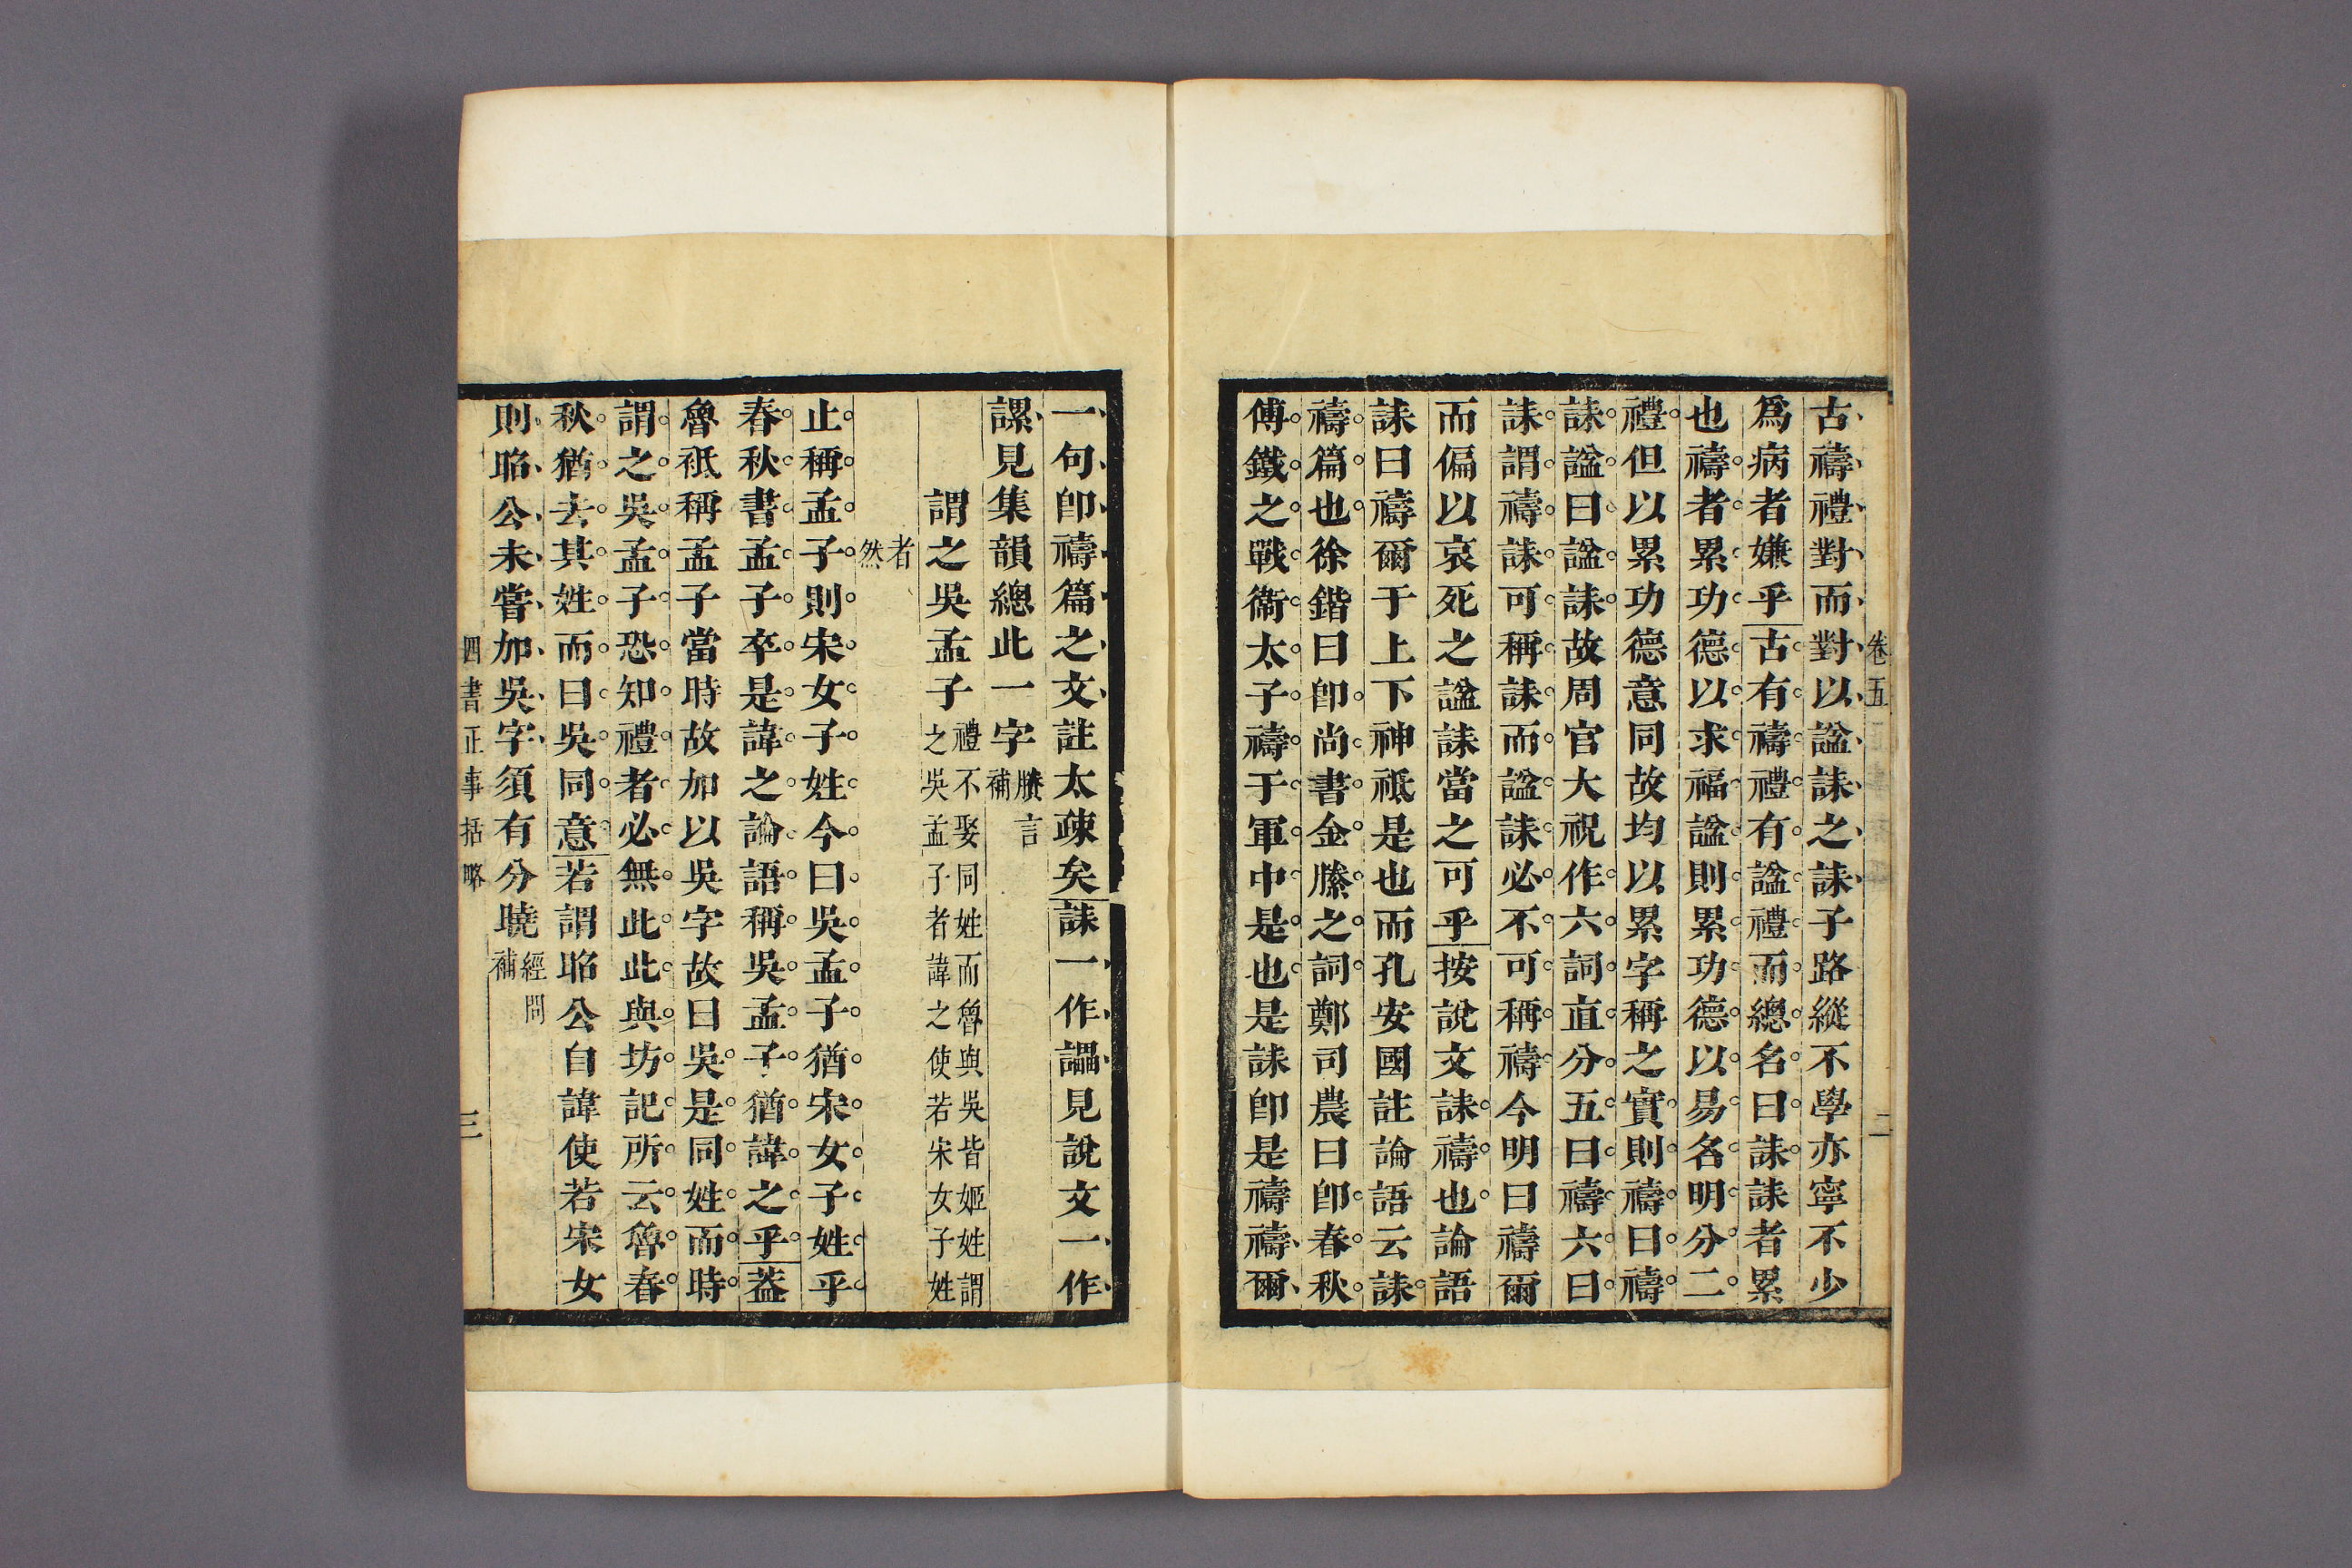 卷五 二
古禱禮對而對以諡誄之誄子路縱不學亦寧不少
爲病者嫌乎古有禱禮有諡禮而總名曰誄誄者累
也禱者累功德以求福諡則累功德以易名明分二
禮但以累功德意同故均以累字稱之實則禱曰禱
誄諡曰諡誄故周官大祝作六詞直分五曰禱六曰
誄謂禱誄可稱誄而諡誄必不可稱禱今明曰禱爾
而偏以哀死之諡誄當之可乎按說文誄禱也論語
誄曰禱爾于上下神祗是也而孔安國註論語云誄
禱篇也徐鍇曰卽尚書金縢之詞鄭司農曰卽春秋
傅鐵之戰衞太子禱于軍中是也是誄卽是禱禱爾
一句卽禱篇之文註太疎矣誄一作讄見說文一作
𧬨見集韻總此一字 賸言
補
謂之吳孟子 禮不娶同姓而魯與吳皆姬姓謂
之吳孟子者諱之使若宋女子姓
者
然
止稱孟子則宋女子姓今曰吳孟子猶宋女子姓乎
春秋書孟子卒是諱之論語稱吳孟子猶諱之乎葢
魯祗稱孟子當時故加以吳字故曰吳是同姓而時
謂之吳孟子恐知禮者必無此此與坊記所云魯春
秋猶去其姓而曰吳同意若謂昭公自諱使若宋女
則昭公未嘗加吳字須有分曉 經問
補
四書正事括略 三